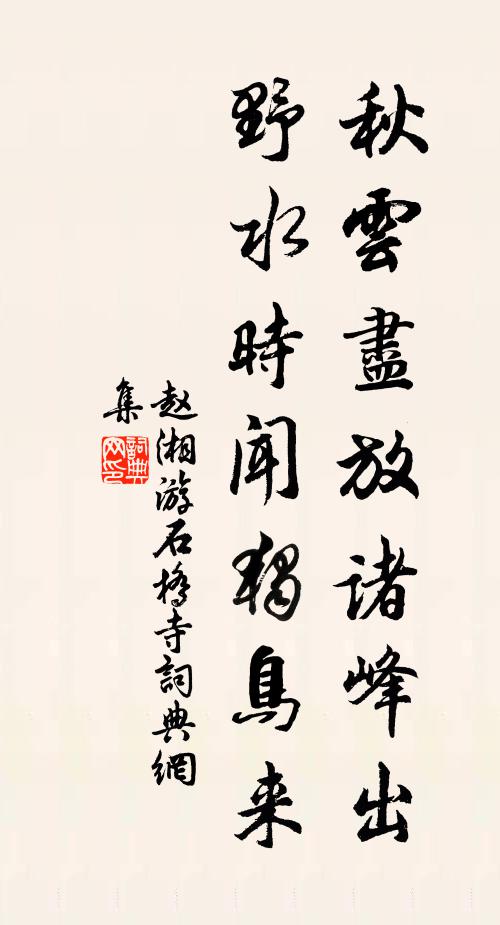 秋雲盡放諸峰出
野水時聞獨鳥来
赵湘游石橋寺詞典網
集
詞典网印